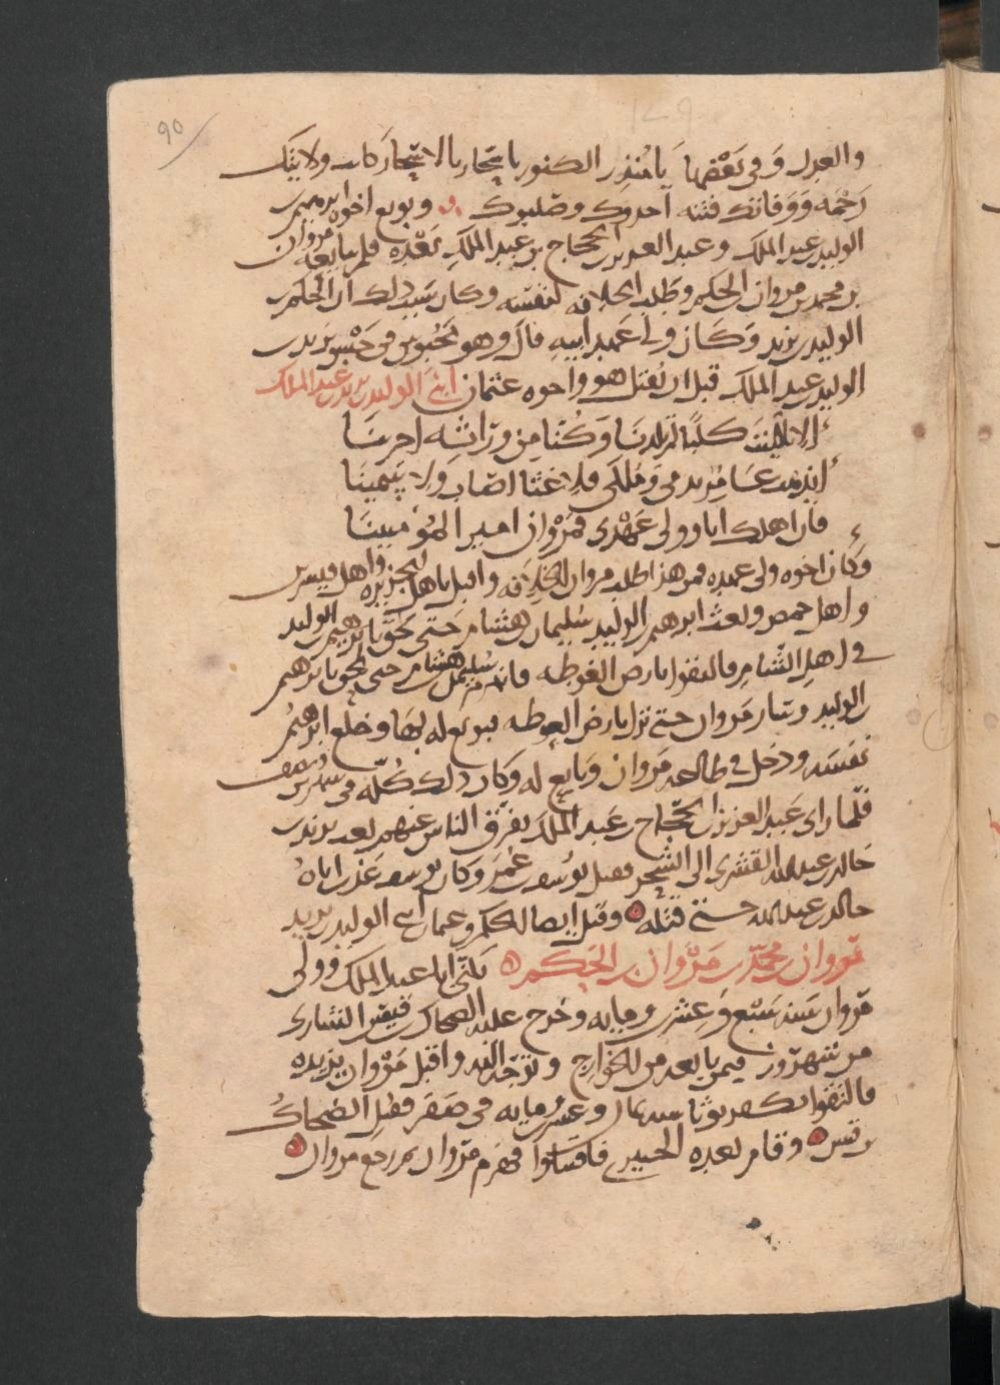 والعدل وفي بعضها يا مبذر الكنوز يا سجاد بالاسحار كانت ولايتك
رحمة ووفاتك فتنة أخذوك وصلبوك وبويع اخوه ابرهيم بن
الوليد بن عبد الملك وعبد العزيز بن الحجاج بن عبد الملك بعده فلم يبايعه مروان
بن محمد بن مروان بن الحكم وطلب الخلافة لنفسه وكان سبب ذلك ان الحكم بن
الوليد بن يزيد وكان ولي عهد ابيه قال وهو محبوس في حبس يزيد بن
الوليد بن عبد الملك قبل ان يقتل هو واخوه عثمان ابني الوليد بن يزيد بن عبد الملك
الا ليت كلبا لم تلدنا وكنا من وراثه اخرينا
ايذهب عامر بدمي وملكي فلا غثا اصاب ولا سمينا
فان اهلك انا وولي عهدي فمروان امير المؤمنينا
وكان اخوه ولي عهده فمن هذا طلب مروان الخلافه واقبل باهل الجزيره واهل قنسرين
واهل حمص وبعث ابرهيم بن الوليد سليمان بن هشام حتى لحق بابرهيم بن الوليد
في اهل الشام فالتقوا بارض الغوطه فانهزم سليمن بن هشام حتى لحق بابرهيم
بن الوليد وسار مروان حتى نزل بارض الغوطه فبويع له بها وخلع ابرهيم
نفسه ودخل في طاعه مروان وبايع له وكان ذلك كله في
فلما راى عبد العزيز بن الحجاج بن عبد الملك تفرق الناس عنهم بعث يزيد بن
خالد بن عبد الله القشري الى السجن فقتل يوسف بن عمر وكان يوسف عذب اباه
خالد بن عبد الله حتى قتله وقتل ايضا الحكم وعثمان ابني الوليد بن يزيد
مروان بن محمد بن مروان بن الحكم يكنى ابا عبد الملك وولي
مروان سنه سبع وعشرين ومايه وخرج عليه الضحاك بن قيس الشاري
من شهرزور فيمن بايعه من الخوارج وتوجه اليه واقبل مروان يريده
فالتقوا بكفرتوثا سنه ثمان وعشرين ومايه في صفر فقتل الضحاك
بن قيس وقام بعده الخيبري فاقتتلوا فهزم مروان ثم رجع مروان